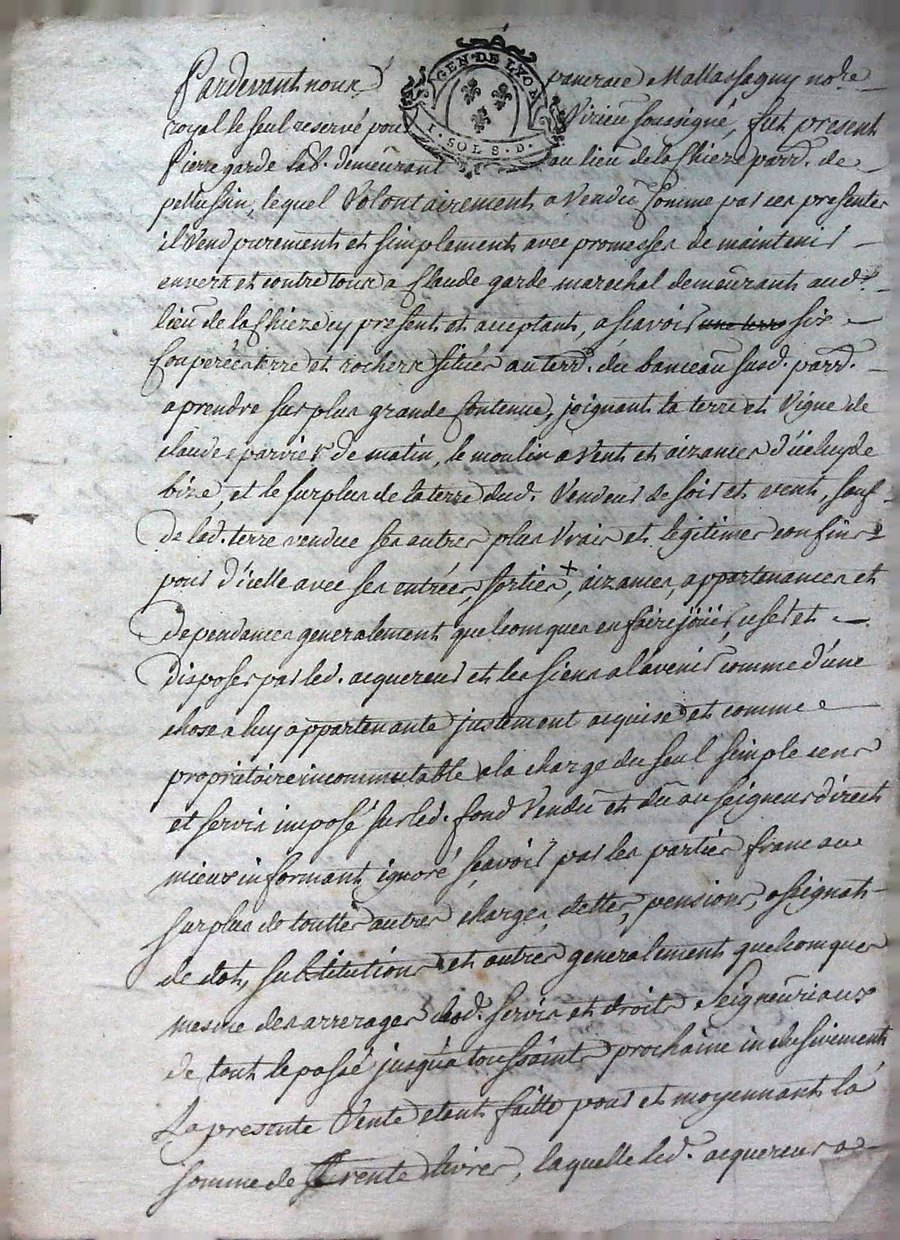 GEN. DE LYON
I. SOL 8. D.
Pardevant nous pancrace Mallassagny no.re
royal le seul reservé pour Virieu soussigné, fut present
Pierre garde lab.r demeurant au lieu de la Chieze parr. de
pellussin, lequel Volontairement a Vendu comme par ces presentes
il Vend purement et simplement avec promesses de maintenir
envers et contre tous a Claude garde marechal demeurant aud.
lieu de la Chieze cy present et acceptant, a scavoir une terre six
Couperées terre et rochers situés au terr. du banceau susd. parr.
a prendre sur plus grande Contenue, joignant la terre et Vigne de
claude parvier de matin, le moulin a Vent et aizances d'iceluy de
bize, et le surplus de la terre dud. Vendeur de soir et vent, sauf
de lad. terre vendue ses autres plus Vrais et legitimes confins
pour d'icelle avec ses entrées, sorties +, aizances, appartenances et
dependances generalement quelcomques en faire joüir, user et
disposer par led. acquereur et les siens a l'avenir comme d'une
chose a luy appartenante justement acquise et comme
proprietaire incommutable a la charge du seul simple cens
et servis imposé sur led. fond Vendu et dû au seigneur direct
mieux informant ignoré scavoir par les parties franc au
surplus de touttes autres charges, dettes, pensions, asseignats
de dot, substitutions et autres generalement quelcomques
mesme des arrerages desd. servis et droits Seigneuriaux
de tout le passé jusqu'a toussaints prochaine inclusivement
La presente Vente etant faitte pour et moyennant la
somme de trente livres, laquelle led. acquereur a